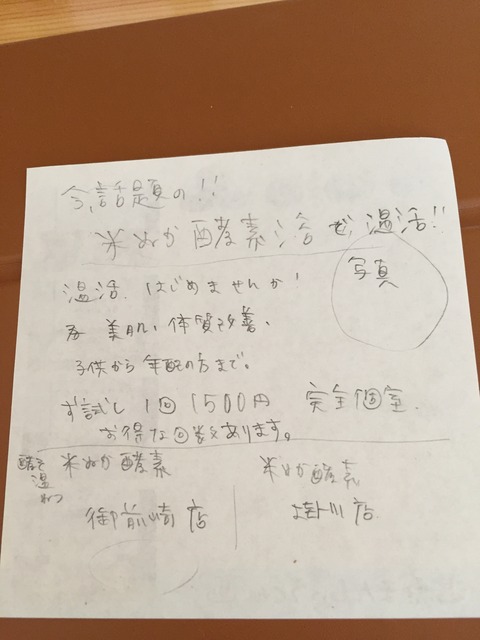 今、話題の!!
米ぬか酵素浴で、温活!!
写真
温活はじめませんか!
美肌、体質改善、
子供から年配の方まで。
お試し 1回 1500円 完全個室
お得な回数あります。
米ぬか酵素 米ぬか酵素
御前崎店 掛川店